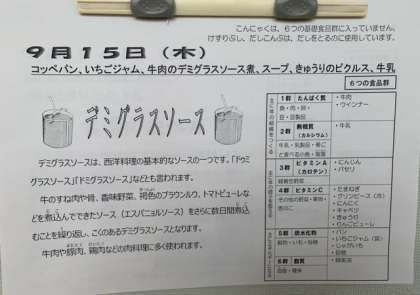 こんにゃくは、6つの基礎食品群に入っていません。
けずりぶし、だしこんぶは、だしをとるのに使用しています。
9月15日（木）
コッペパン、いちごジャム、牛肉のデミグラスソース煮、スープ、きゅうりのピクルス、牛乳
デミグラスソース
デミグラスソースは、西洋料理の基本的なソースの一つです。「ドゥミ
グラスソース」「ドミグラスソース」などとも言われます。
牛のすね肉や骨、香味野菜、褐色のブラウンルウ、トマトピューレな
どを煮込んでできたソース（エスパニョルソース）をさらに数日間煮込
むことを繰り返し、こくのあるデミグラスソースとなります。
牛肉や豚肉、鶏肉などの肉料理に多く使われます。
6つの食品群
1群 たんぱく質
魚・肉・卵・
豆・豆製品
・牛肉
・ウインナー
2群 無機質
（カルシウム）
・牛乳
3群 ビタミンA
（カロテン）
緑黄色野菜
・にんじん
・パセリ
4群 ビタミンC
・たまねぎ
・グリンピース
・にんにく
・キャベツ
・きゅうり
・りんごピューレ
5群 炭水化物
穀物・いも・砂糖
・パン
・いちごジャム
・じゃがいも
・砂糖
6群 脂質
油脂・種実